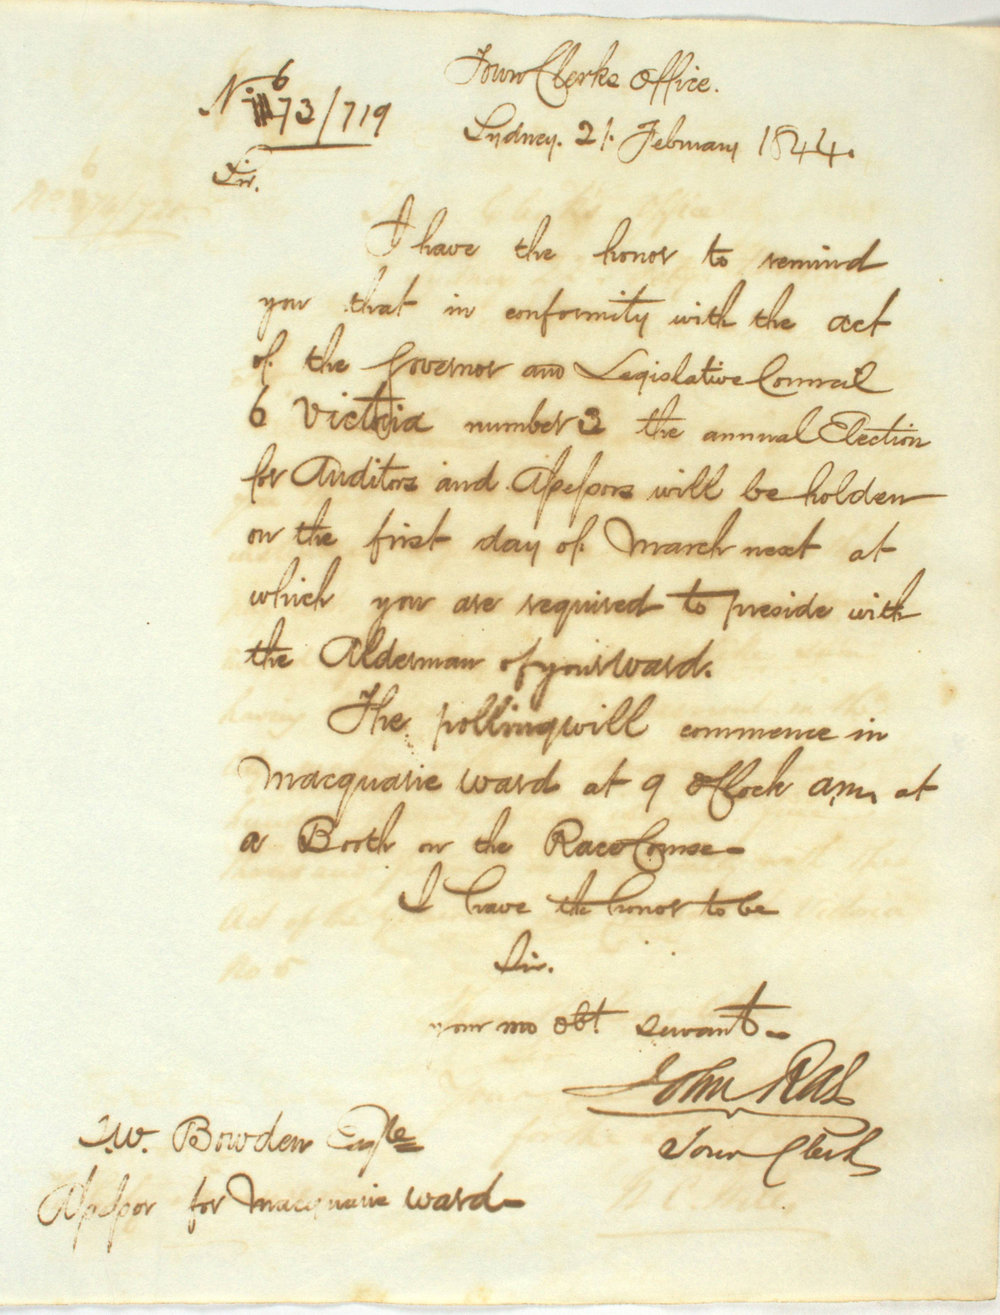 Town Clerks Office.
No. 6
73/719
Sydney. 21. February 1844.
Sir.
I have the honor to remind
you that in conformity with the act
of the Governor and Legislative Council
6 Victoria number 3 the annual Election
for Auditors and Assessors will be holden
on the first day of March next at
which you are required to preside with
the Alderman of your ward.
The polling will commence in
Macquarie ward at 9 oClock am, at
a Booth on the Race Course–
I have the honor to be
Sir.
your mo obt servant–
John Rae
Town Clerk
T.W. Bowden Esqre
Assessor for Macquarie ward–